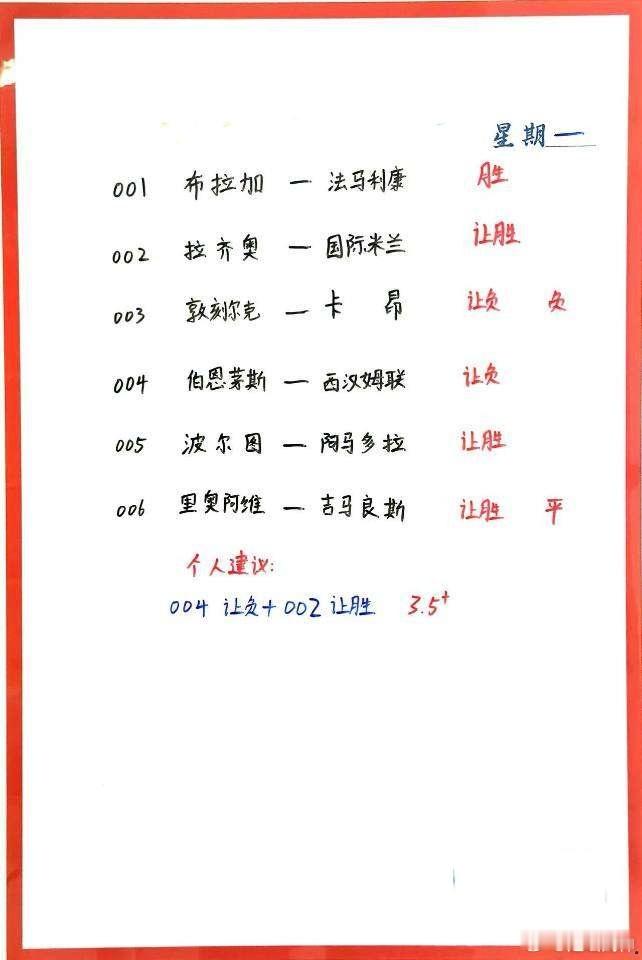 星期一
001 布拉加 — 法马利康 胜
002 拉齐奥 — 国际米兰 让胜
003 敦刻尔克 — 卡昂 让负 负
004 伯恩茅斯 — 西汉姆联 让负
005 波尔图 — 阿马多拉 让胜
006 里奥阿维 — 吉马良斯 让胜 平
个人建议:
004 让负+002 让胜 3.5+